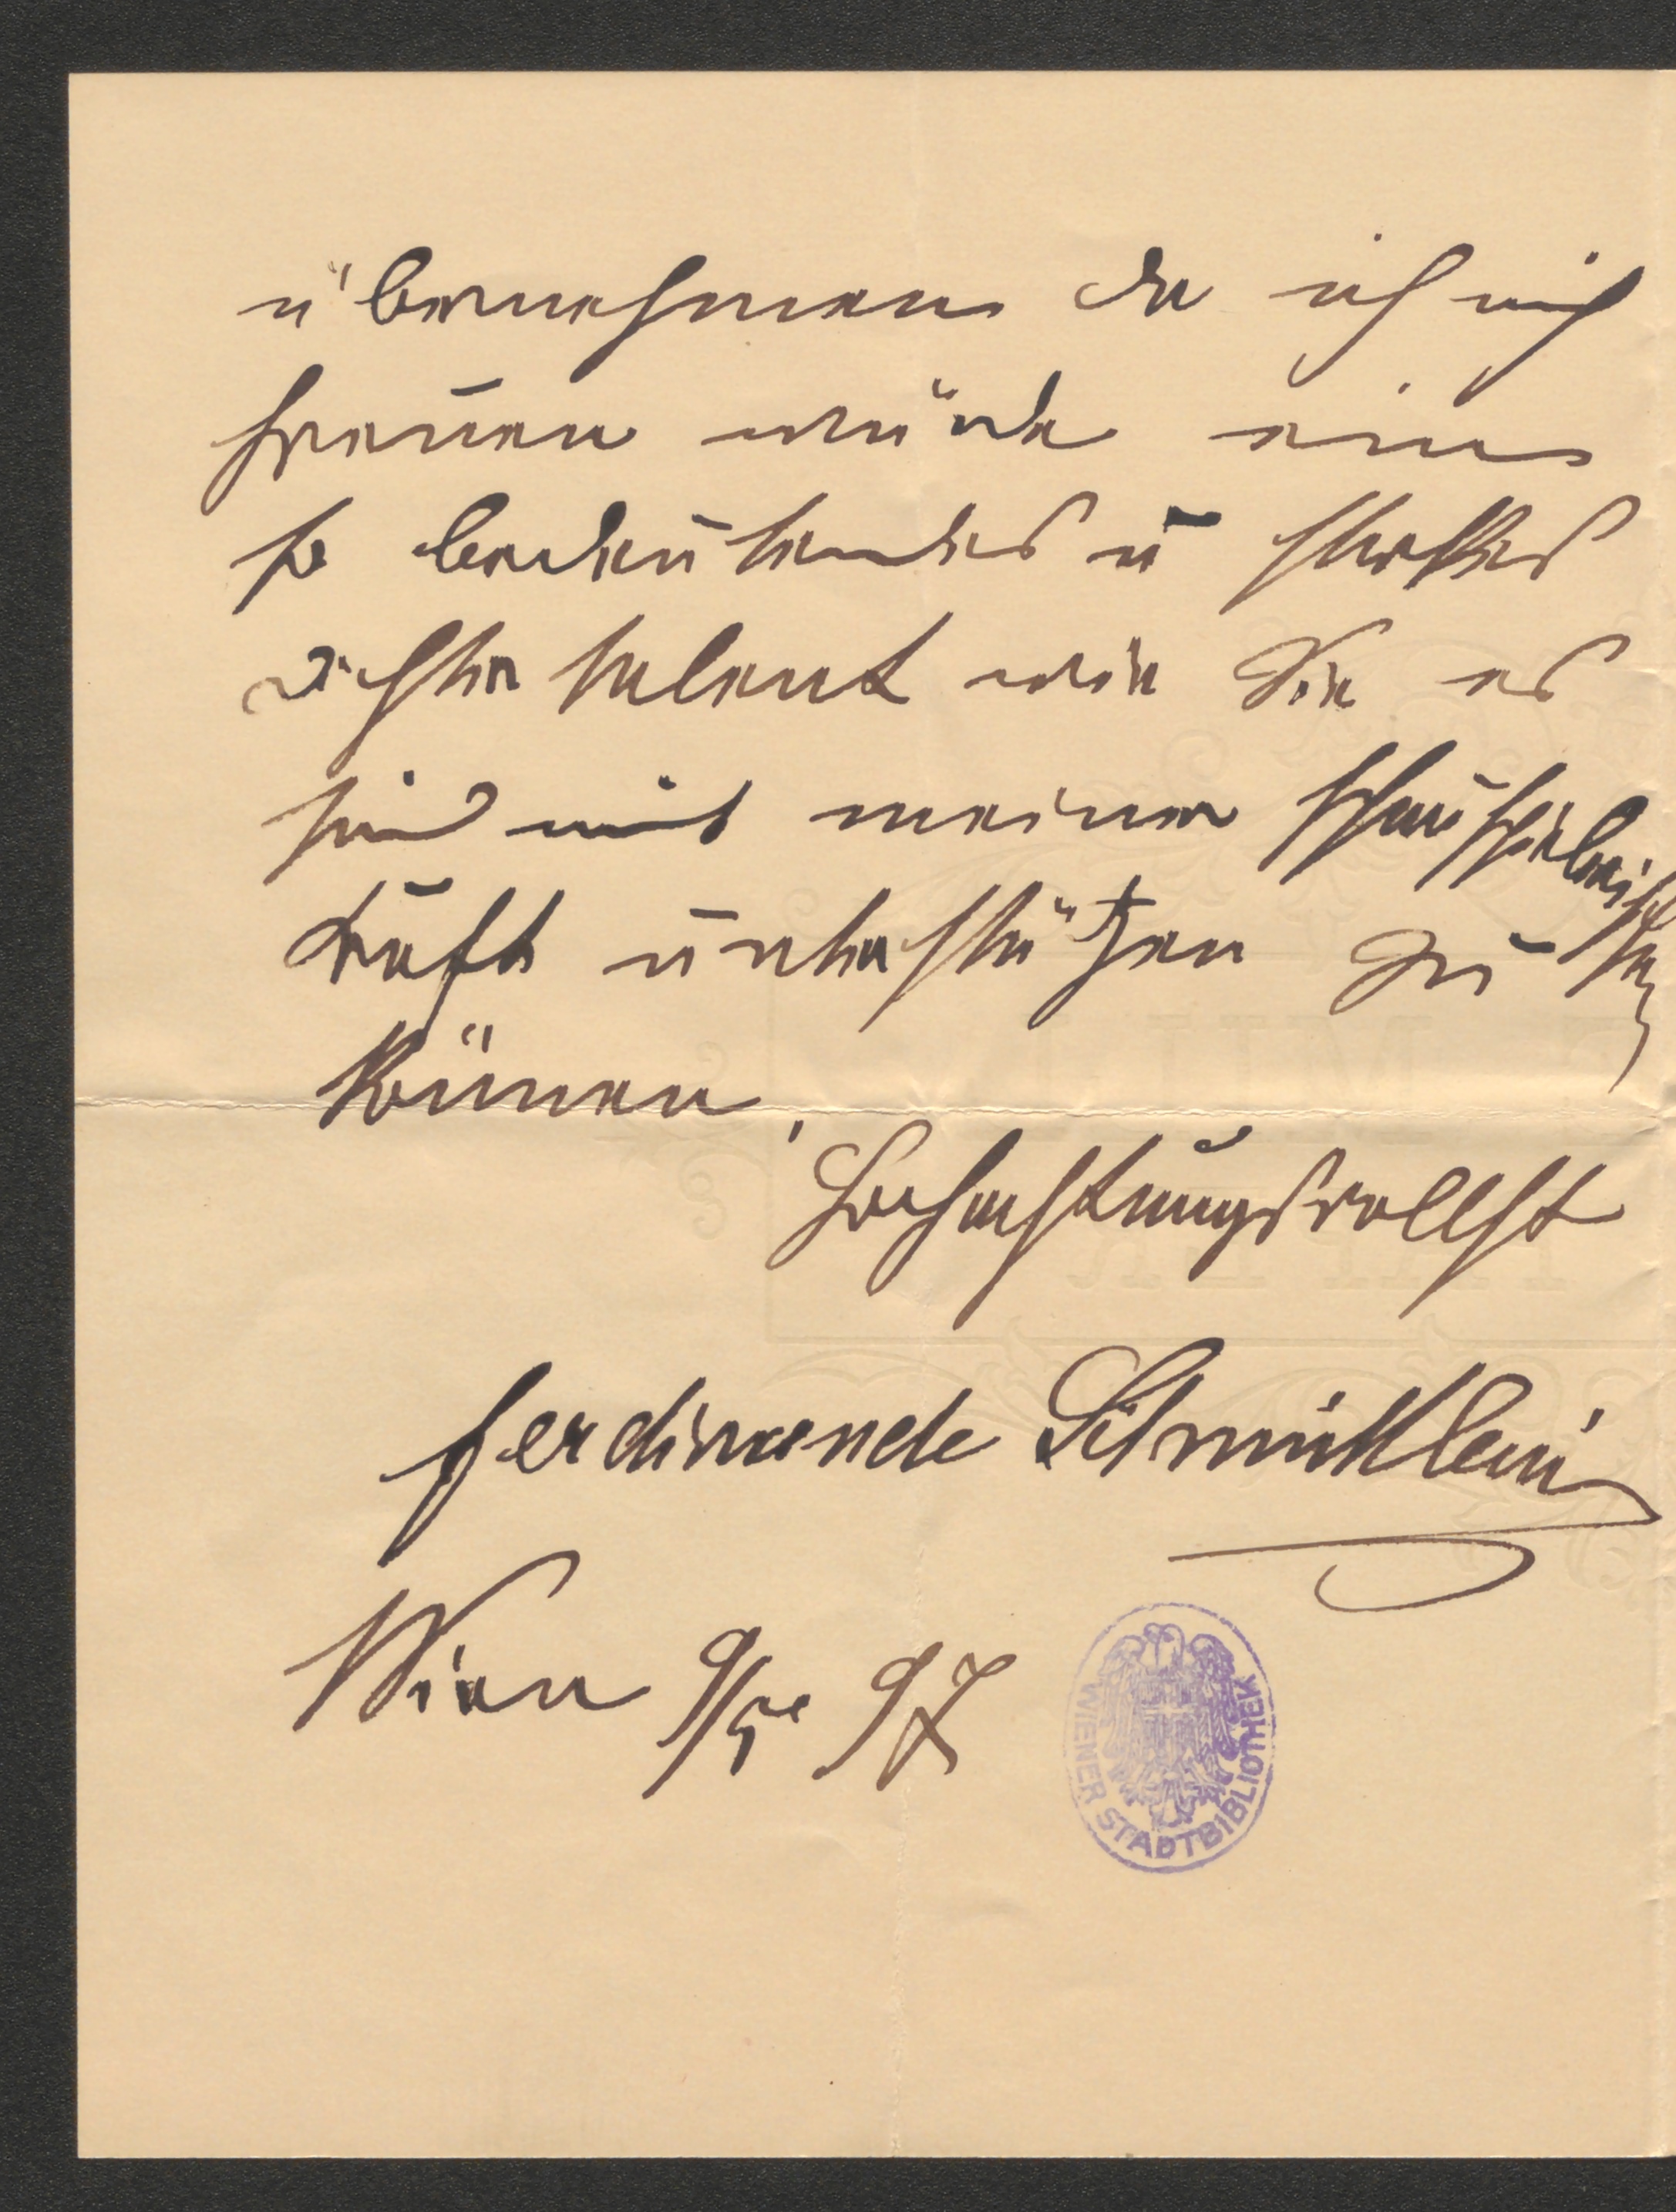 übernehmen da ich mich
freuen würde ein
so bedeutendes u starkes
Dichter talent wie Sie es
sind mit meiner schauspielerischen
Kraft unterstützen zu
können.
Hochachtungsvollst
Ferdinande Schmittlein
Wien 9/5 97
WIENER STADTBIBLIOTHEK